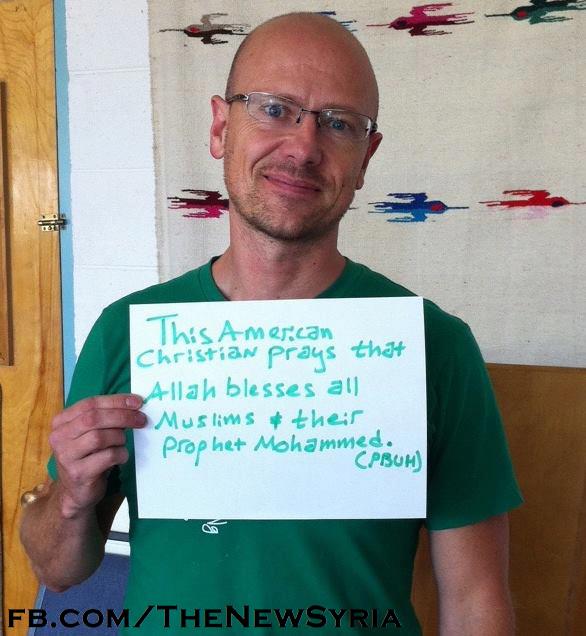 This American
Christian prays that
Allah blesses all
Muslims & their
Prophet Mohammed.
(PBUH)
FB.COM/THENEWSYRIA